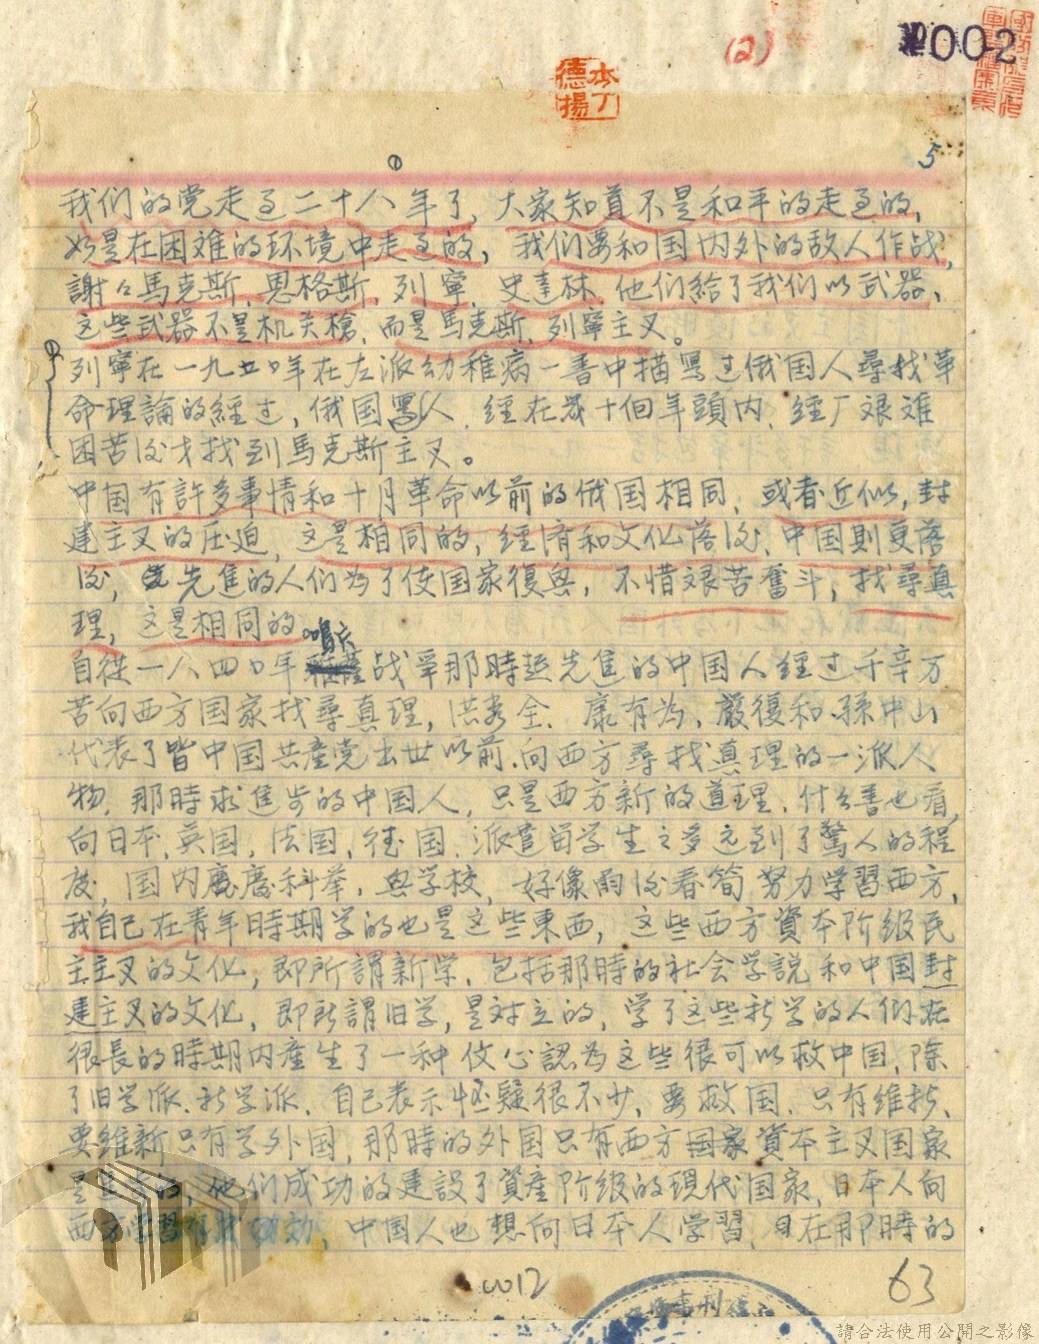 (2)
002
本丁
德揚
5
①
我们的党走过二十八年了，大家知道不是和平的走过的，
如是在困难的环境中走过的，我们要和国内外的敌人作战，
謝々馬克斯，恩格斯，列寧，史達林，他们給了我们以武器、
这些武器不是机关槍，而是馬克斯，列寧主义。
①
列寧在一九二〇年在左派幼稚病一書中描寫过俄国人尋找革
命理論的經过，俄国人，經在幾十個年頭内，經厂艰难
困苦后才找到馬克斯主义。
中国有許多事情和十月革命以前的俄国相同，或者近似，封
建主义的压迫，这是相同的，經濟和文化落后，中国則更落
后，先進的人们为了使国家復兴，不惜艰苦奮斗，找尋真
理，这是相同的
自從一八四〇年鴉片战爭那時起先進的中国人經过千辛万
苦向西方国家找尋真理，洪秀全、康有为、嚴復和孫中山
代表了皆中国共產党出世以前，向西方尋找真理的一派人
物，那時求進步的中国人，只是西方新的道理，什么書也看，
向日本，英国，法国，德国，派遣留学生之多达到了驚人的程
度，国内廢廢科举，興学校，好像雨后春筍努力学習西方，
我自己在青年時期学的也是这些東西，这些西方資本阶級民
主主义的文化，即所謂新学，包括那時的社会学説和中国封
建主义的文化，即所謂旧学，是对立的，学了这些新学的人们在
很長的時期内產生了一种信心認为这些很可以救中国，除
了旧学派、新学派，自己表示怀疑很不少，要救国，只有維新、
要維新只有学外国，那時的外国只有西方国家資本主义国家
是的，他们成功的建設了資產阶級的現代国家，日本人向
西方学習有成功効，中国人也想向日本人学習，日在那時的
0012
63
請合法使用公開之影像